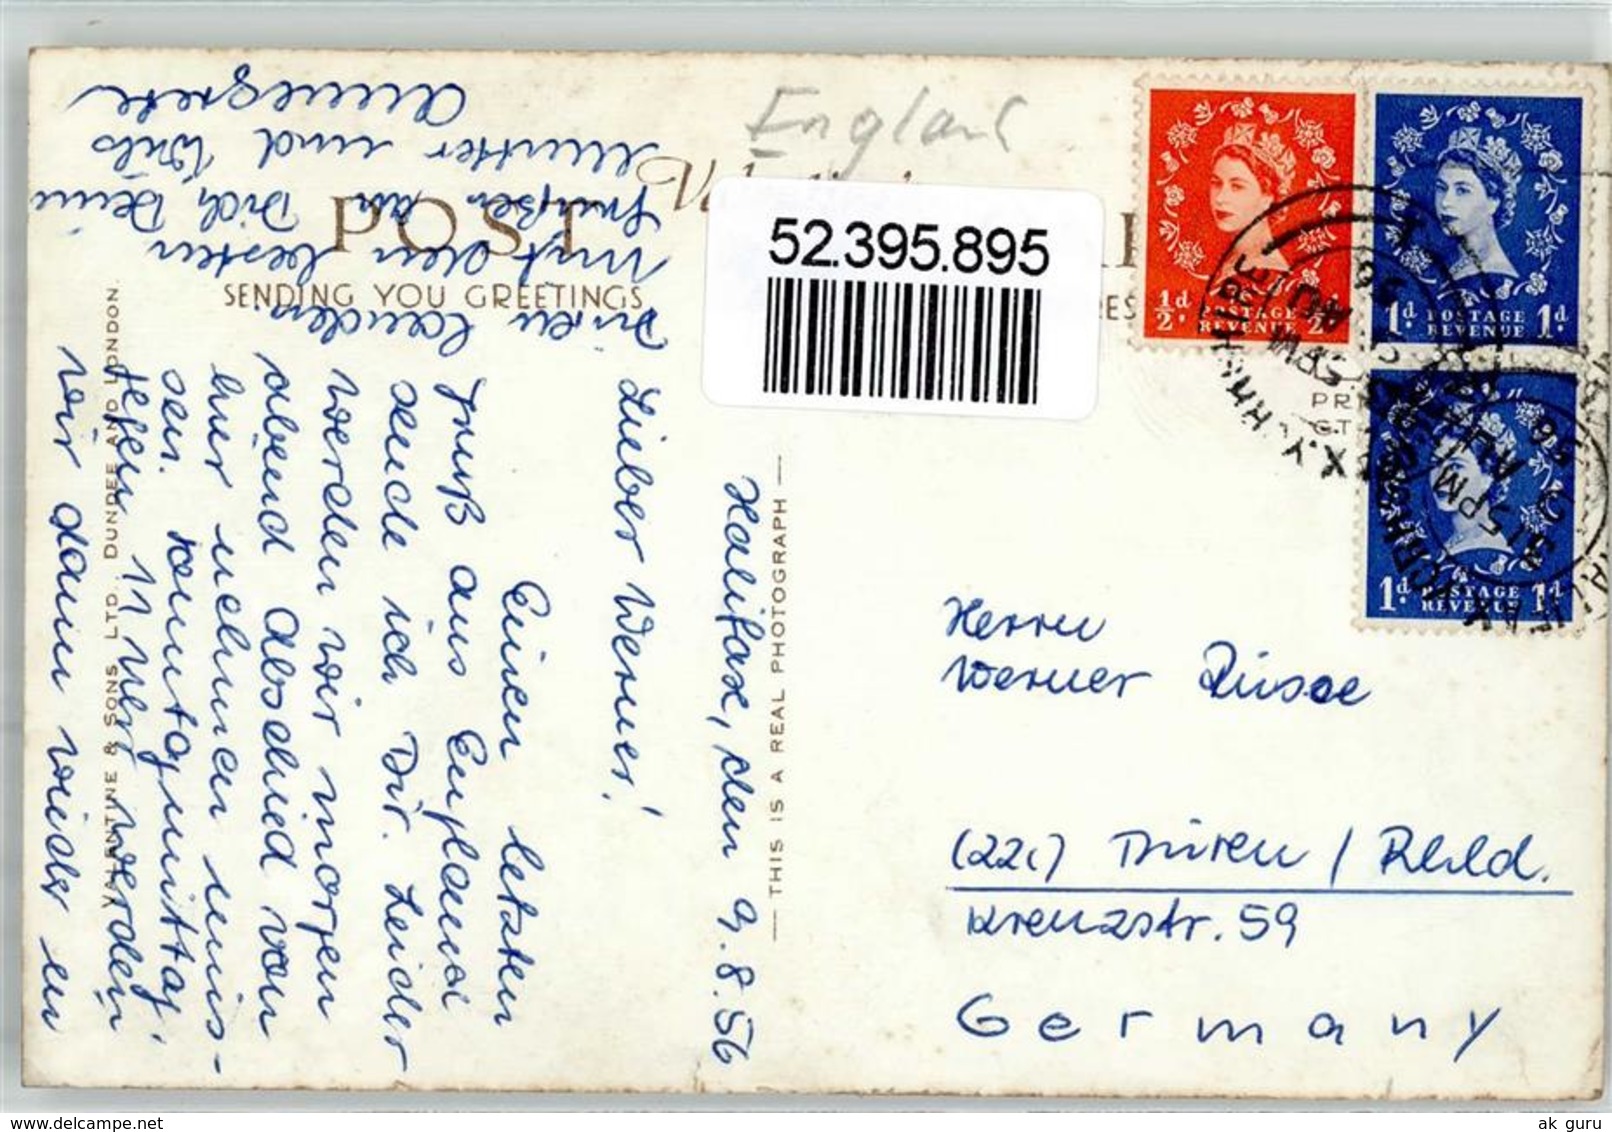 England
POST
SENDING YOU GREETINGS
52.395.895
½d
POSTAGE
REVENUE
1d POSTAGE 1d
REVENUE
1d POSTAGE 1d
REVENUE
HALIFAX
YORKSHIRE
5 PM
9 AU
56
VALENTINE & SONS LTD., DUNDEE AND LONDON.
— THIS IS A REAL PHOTOGRAPH —
Halifax, den 9.8.56
Lieber Werner!
Einen letzten
Gruß aus England
sende ich Dir. Leider
werden wir morgen
abend Abschied von
hier nehmen müs-
sen. Sonntagmittag
gegen 11 Uhr werden
wir dann wieder in
Düren landen.
Mit den besten
Grüßen an Dich, Deine
Mutter und Willi
Annegrete
Herrn
Werner
(22c) Düren / Rhld.
Kreuzstr. 59
Germany
ak guru